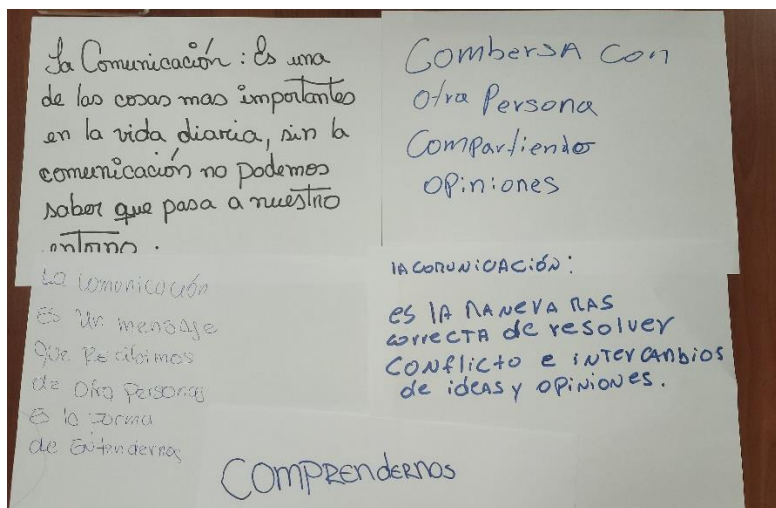 La Comunicación: Es una
de las cosas mas importantes
en la vida diaria, sin la
comunicación no podemos
saber que pasa a nuestro
entorno.
CombersA con
Otra Persona
Compartiendo
opiniones
La comunicación
Es un mensaje
que Recibimos
de Otra Personas
Es la forma
de Entendernos
lA COMUNICACIÓN:
es lA MANEVA MAS
correcTA de resolver
CONflicto e iNTERCANbios
de ideas y OPiNiONes.
COMPRENdERNOS